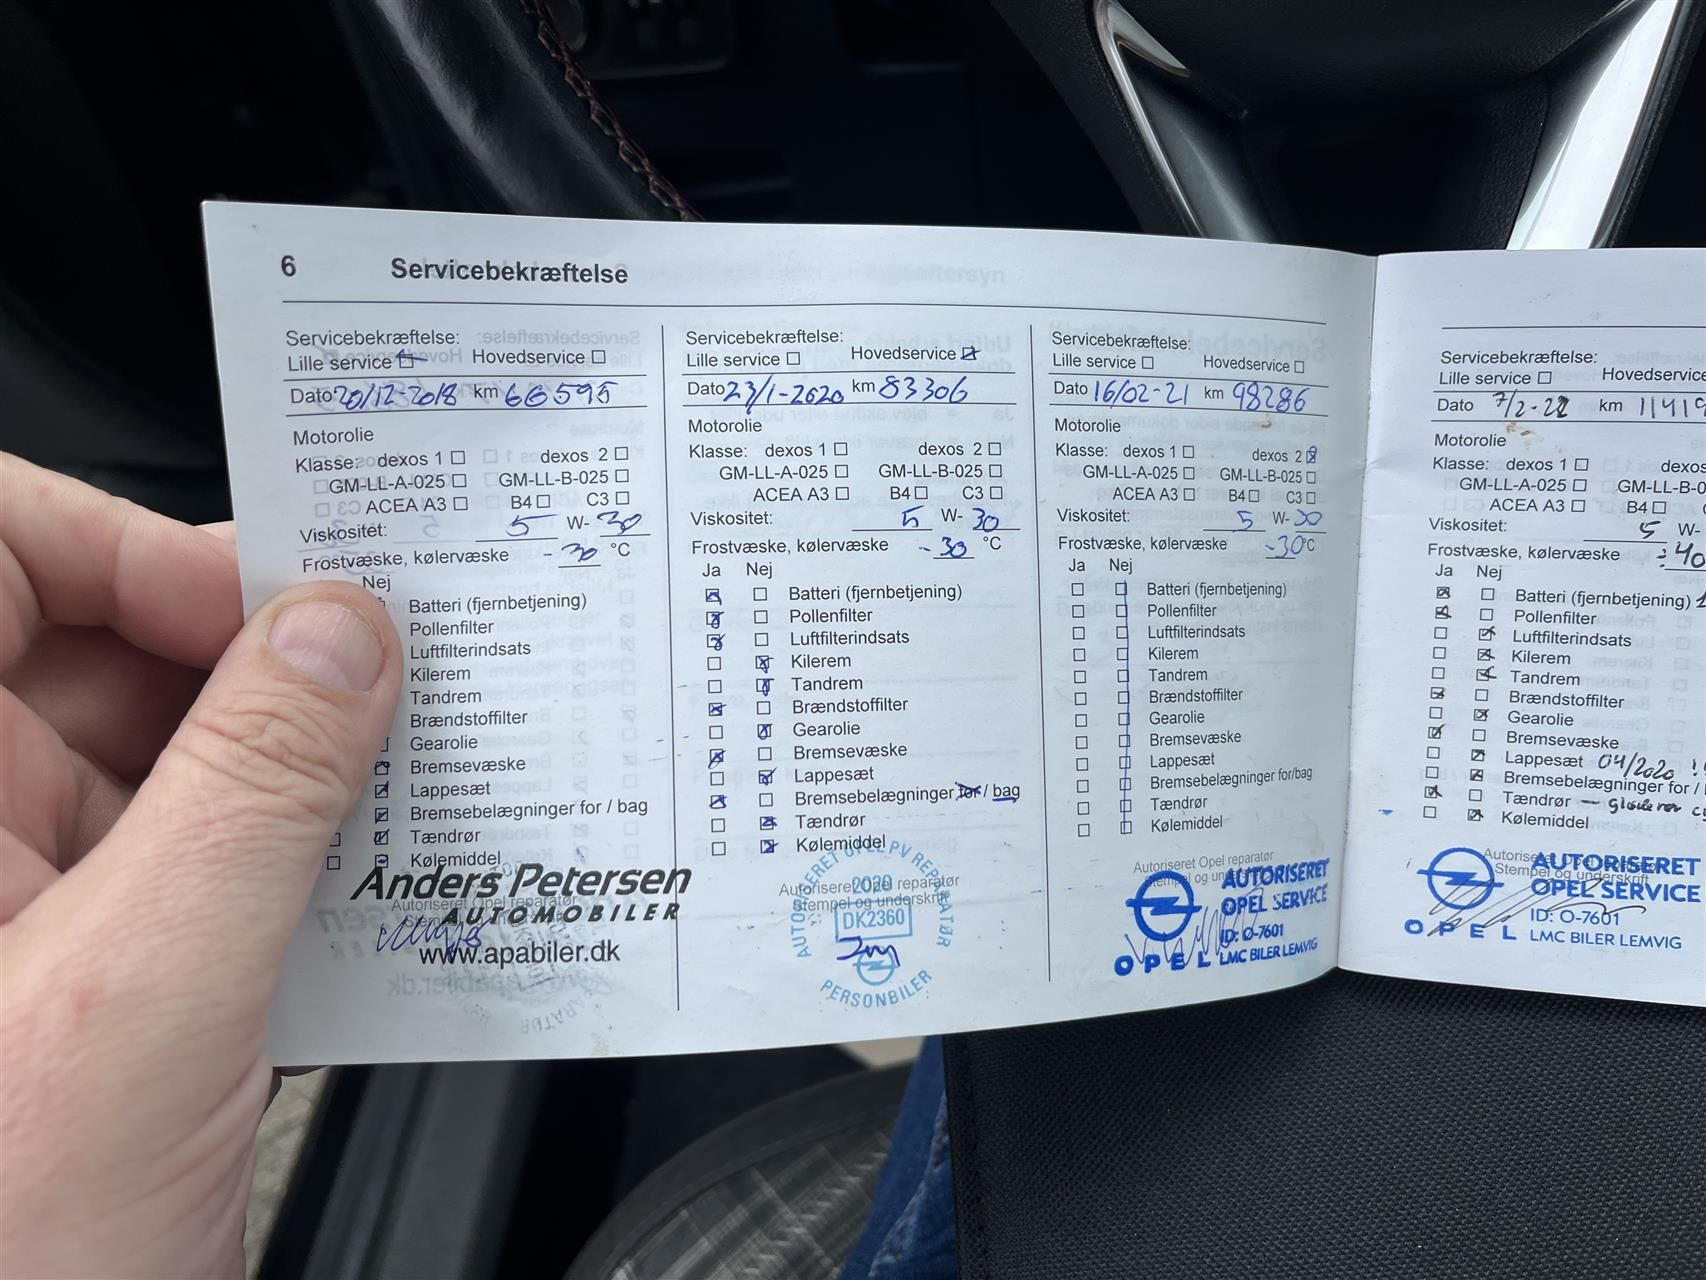 6 Servicebekræftelse
Servicebekræftelse:
Lille service Hovedservice
Dato 20/12-2018 km 66595
Motorolie
Klasse: dexos 1 dexos 2
GM-LL-A-025 GM-LL-B-025
ACEA A3 B4 C3
Viskositet: 5 W-30
Frostvæske, kølervæske -30 °C
Nej
Batteri (fjernbetjening)
Pollenfilter
Luftfilterindsats
Kilerem
Tandrem
Brændstoffilter
Gearolie
Bremsevæske
Lappesæt
Bremsebelægninger for / bag
Tændrør
Kølemiddel
Anders Petersen
AUTOMOBILER
Autoriseret Opel reparatør
www.apabiler.dk
Servicebekræftelse:
Lille service Hovedservice
Dato 23/1-2020 km 83306
Motorolie
Klasse: dexos 1 dexos 2
GM-LL-A-025 GM-LL-B-025
ACEA A3 B4 C3
Viskositet: 5 W-30
Frostvæske, kølervæske -30 °C
Ja Nej
Batteri (fjernbetjening)
Pollenfilter
Luftfilterindsats
Kilerem
Tandrem
Brændstoffilter
Gearolie
Bremsevæske
Lappesæt
Bremsebelægninger for / bag
Tændrør
Kølemiddel
AUTORISERET OPEL PV REPARATØR
Autoriseret Opel reparatør
Stempel og underskrift
2020
DK2360
PERSONBILER
Servicebekræftelse:
Lille service Hovedservice
Dato 16/02-21 km 98286
Motorolie
Klasse: dexos 1 dexos 2
GM-LL-A-025 GM-LL-B-025
ACEA A3 B4 C3
Viskositet: 5 W-30
Frostvæske, kølervæske -30°C
Ja Nej
Batteri (fjernbetjening)
Pollenfilter
Luftfilterindsats
Kilerem
Tandrem
Brændstoffilter
Gearolie
Bremsevæske
Lappesæt
Bremsebelægninger for/bag
Tændrør
Kølemiddel
Autoriseret Opel reparatør
Stempel og underskrift
AUTORISERET
OPEL SERVICE
ID: O-7601
OPEL LMC BILER LEMVIG
Servicebekræftelse:
Lille service Hovedservice
Dato 7/2-22 km 1141
Motorolie
Klasse: dexos 1 dexos
GM-LL-A-025 GM-LL-B-0
ACEA A3 B4
Viskositet: 5 W-
Frostvæske, kølervæske ÷40
Ja Nej
Batteri (fjernbetjening)
Pollenfilter
Luftfilterindsats
Kilerem
Tandrem
Brændstoffilter
Gearolie
Bremsevæske
Lappesæt 04/2020 !!
Bremsebelægninger for /
Tændrør
Kølemiddel
Autoriseret Opel reparatør
Stempel og underskrift
AUTORISERET
OPEL SERVICE
ID: O-7601
OPEL LMC BILER LEMVIG